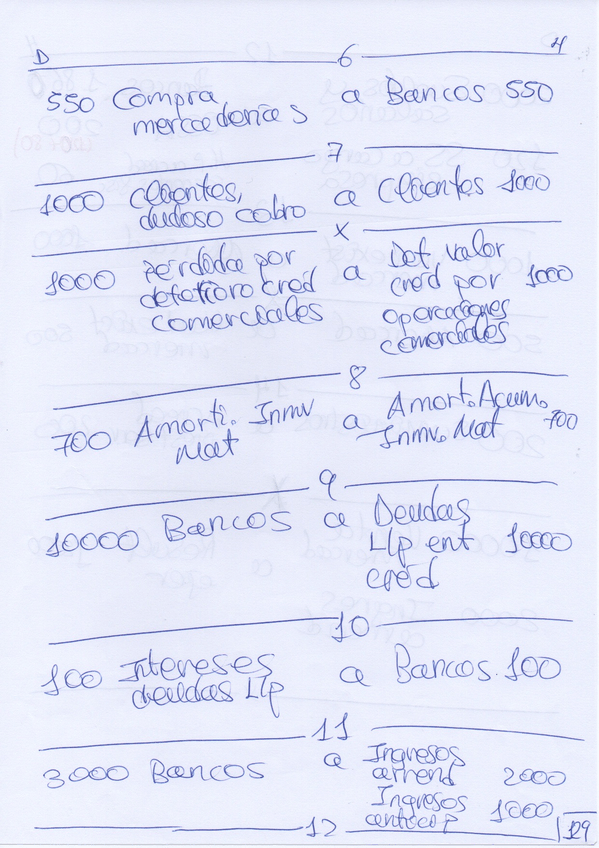 D 6 4
550 Compra a Bancos 550
mercaderías
7
1000 Clientes, a Clientes 1000
dudoso cobro
x
1000 Perdida por a Det. valor
deterioro cred cred por 1000
comerciales operaciones
comerciales
8
700 Amorti. Inmv a Amort. Acum.
Mat Inmv. Mat 700
9
10000 Bancos a Deudas
L/p ent 10000
créd
10
100 Intereses a Bancos. 100
deudas L/p
11
3000 Bancos a Ingresos
arrend 2000
Ingresos
1000
12 129